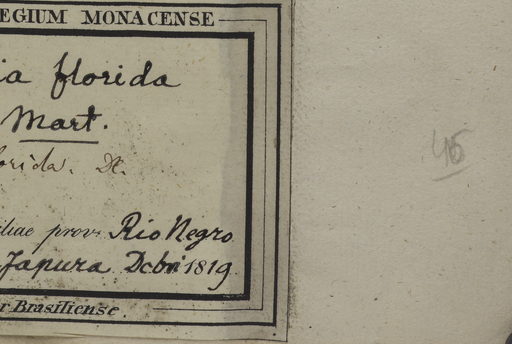 EGIUM MONACENSE
ia florida
Mart.
orida. DC.
iliae prov: Rio Negro
Japura Dcbri 1819
r Brasiliense.
45